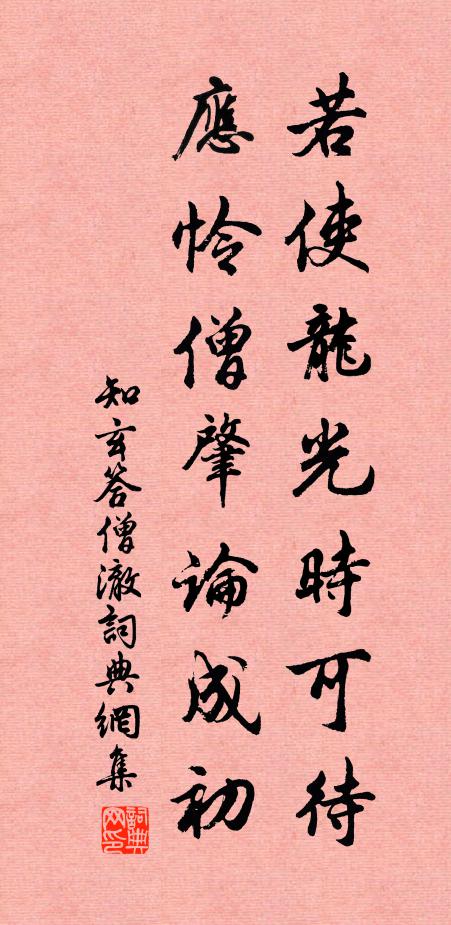 若使龍光時可待
應怜僧肇論成初
知玄答僧澈詞典網集
詞典網印